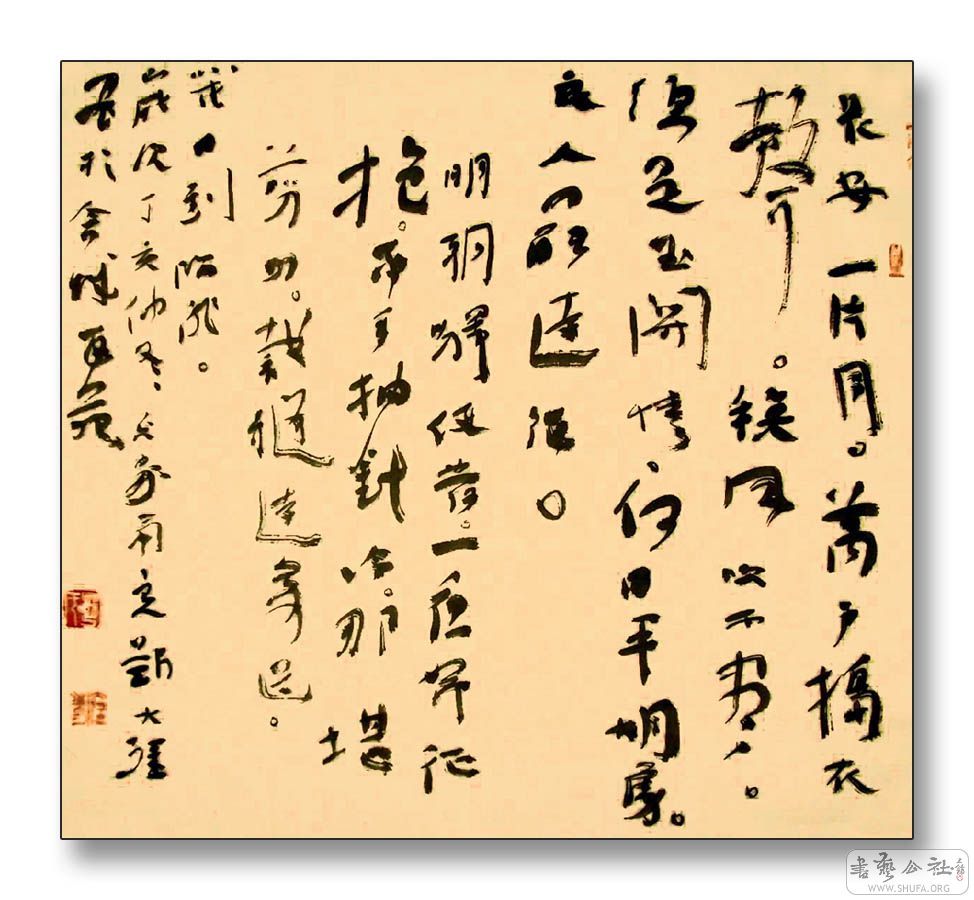 長安一片月。萬户搗衣
聲。秋風吹不盡。
總是玉關情、何日平胡虜。
良人罷遠征。
明朝驛使發。一夜絮征
袍。素手抽針冷。那堪
剪刀。裁縫遠寄道。
幾日到臨洮。
歲次丁亥仲冬、
於金城
書藝公社
WWW.SHUFA.ORG